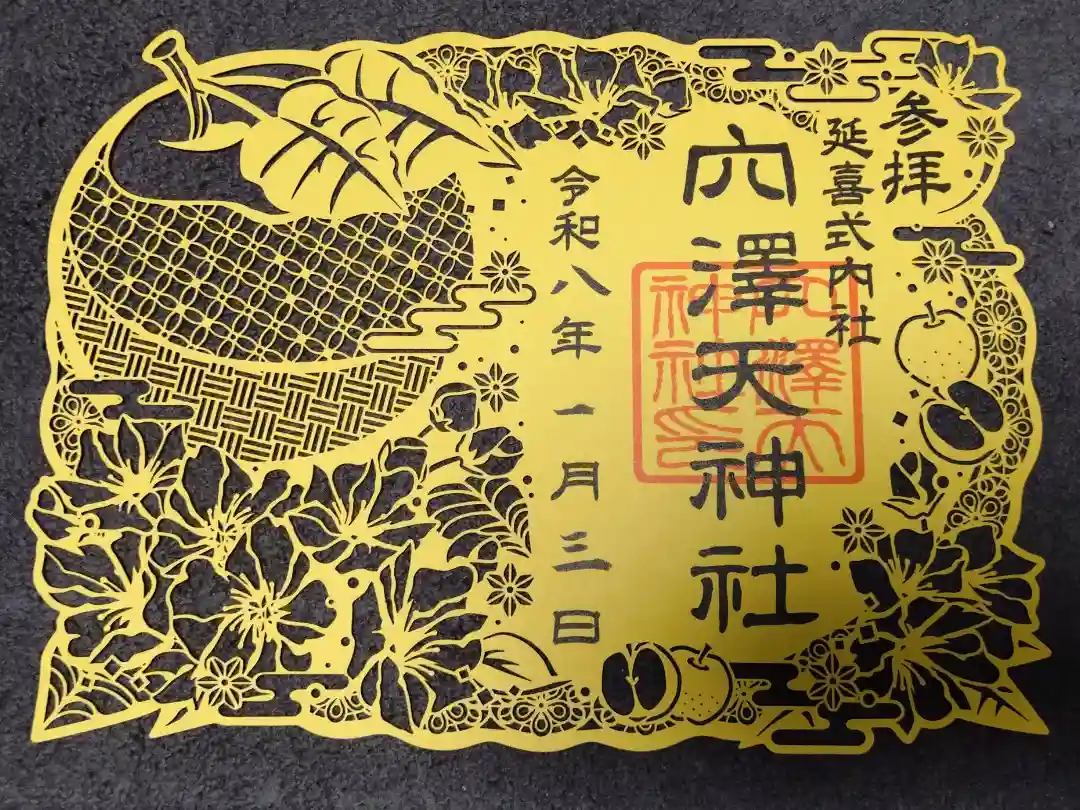 参拝
延喜式内社
穴澤天神社
令和八年一月三日
穴澤天
神社印